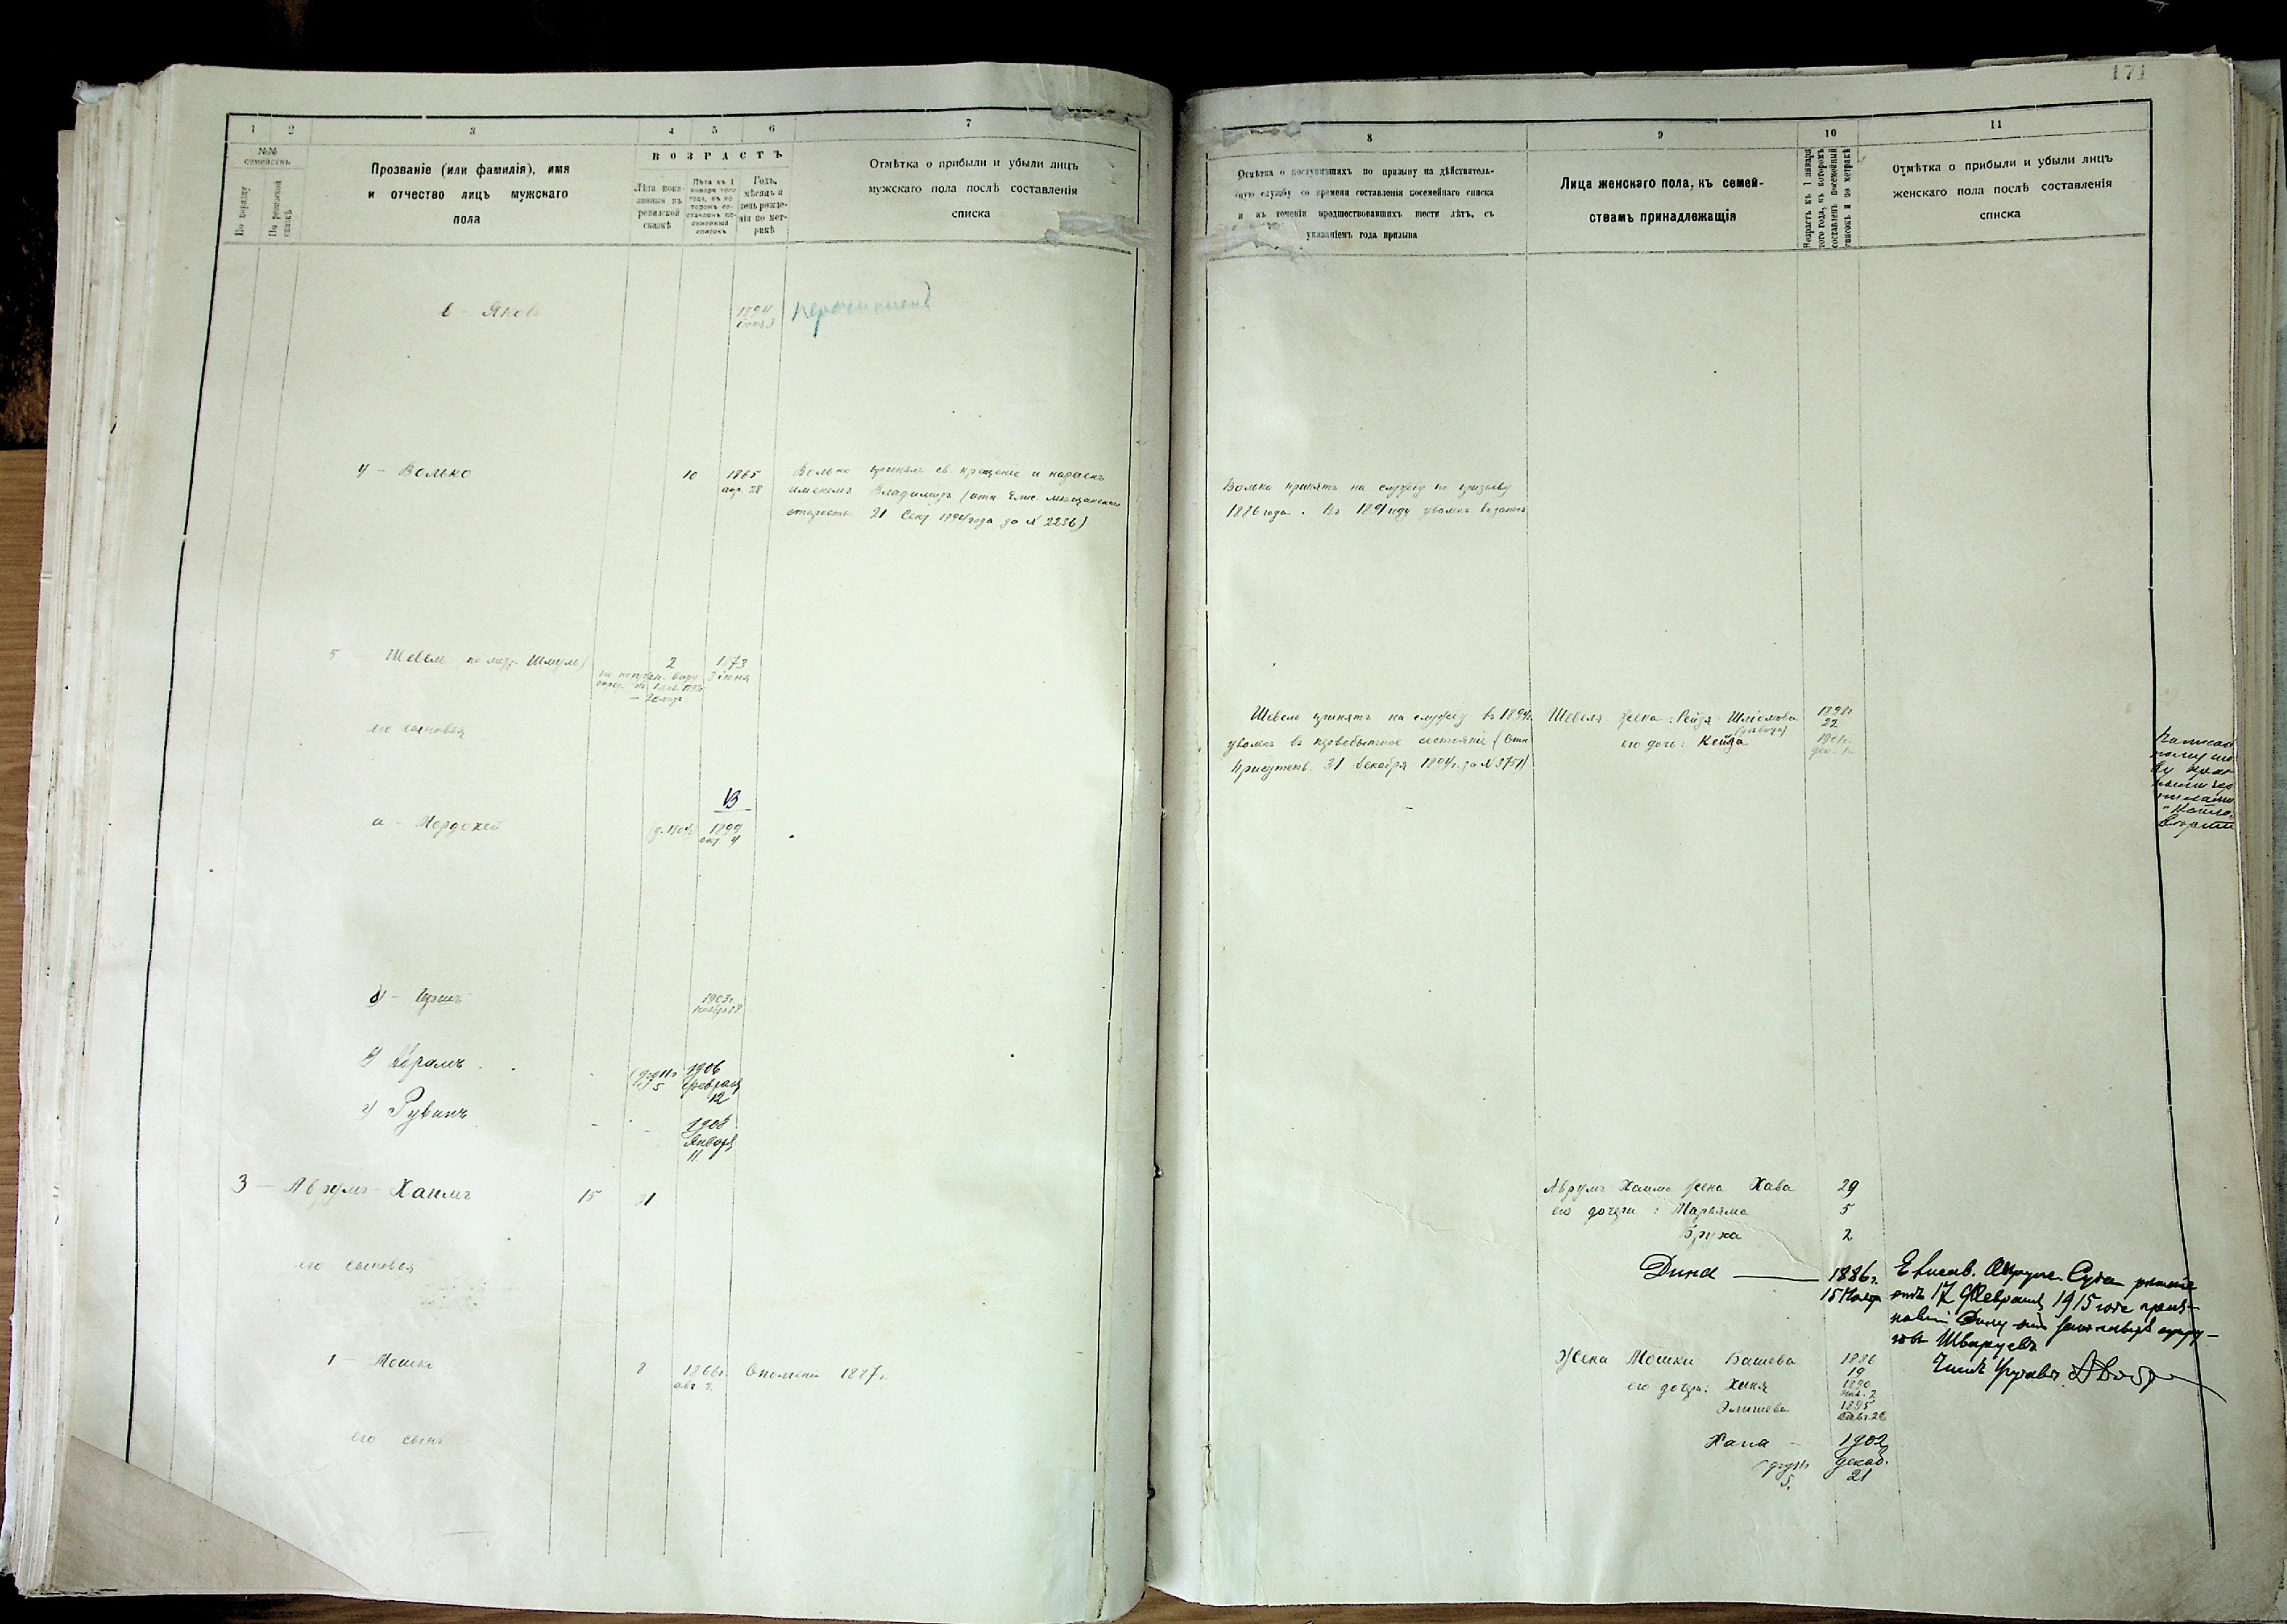 171
1 2 3 4 5 6 7
№№ семействъ
По порядку
По ревизской сказкѣ
Прозваніе (или фамилія), имя
и отчество лицъ мужскаго
пола
ВОЗРАСТЪ
Лѣта пока-
занныя въ
ревизской
сказкѣ
Лѣта къ 1
января того
года, въ ко-
торомъ со-
ставленъ по-
семейный
списокъ
Годъ,
мѣсяцъ и
день рожде-
нія по мет-
рикѣ
Отмѣтка о прибыли и убыли лицъ
мужскаго пола послѣ составленія
списка
в - Яковъ 1894
4 - Волько 10 1865
апр. 28
Волько принялъ св. крещеніе и нареченъ
именемъ Владиміръ (отн. Елис. мѣщанскаго
старосты 21 Сент 1894 года за № 2256)
5 Шевель (по метр. Шмуль) 2 1873
3 іюня
его сыновья
13
а - Мордохей 1899
окт 4
б) - 1903г.
ноября 18
в) Абрамъ 1906
февраля
12
г) Рувинъ 1908
Января
11
3 - Аврумъ-Хаимъ 15 31
его сыновья
1 - Мошко 8 1866г.
авг 2.
1887г.
его сынъ
8 9 10 11
Отмѣтка о поступившихъ по призыву на дѣйствитель-
ную службу со времени составленія посемейнаго списка
и въ теченіи предшествовавшихъ шести лѣтъ, съ
указаніемъ года призыва
Лица женскаго пола, къ семей-
ствамъ принадлежащія
Возрастъ къ 1 января
того года, въ которомъ
составленъ посемейный
списокъ и по метрикѣ
Отмѣтка о прибыли и убыли лицъ
женскаго пола послѣ составленія
списка
Волько принятъ на службу по призыву
1886 года. Въ 1891 году уволенъ въ запасъ
Шевель принятъ на службу въ 1894г.
уволенъ въ первобытное состояніе (Отн
Присутств. 31 декабря 1894г. за № 3751)
Шевеля жена: Рейзя Шліомова 1898г
22
его дочь: Кейла 1901г.
Аврумъ Хаима жена Хава 29
его дочери: Марьяма 5
Бруха 2
Дина — 1886г.
15
Елисав. Окруж. Суда рѣшеніе
отъ 17 Февраля 1915 года призн-
Дину
Жена Мошки Башева 1886
19
его дочери: Хиня 1890
Элишева 1895
Хана - 1902
декаб.
21
5.